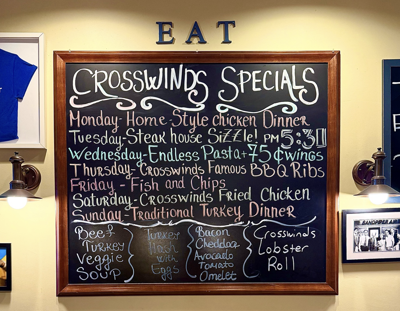 EAT
CROSSWINDS SPECIALS
Monday-Home-Style chicken Dinner
Tuesday-Steak house Sizzle! PM 5:30
Wednesday-Endless Pasta+75¢ WINGS
Thursday-Crosswinds Famous BBQ Ribs
Friday - Fish and Chips
Saturday-Crosswinds Fried Chicken
Sunday-Traditional Turkey Dinner
Beef
Turkey
Veggie
Soup
Turkey
Hash
with
Eggs
Bacon
Cheddar
Avocado
Tomato
Omelet
Crosswinds
Lobster
Roll